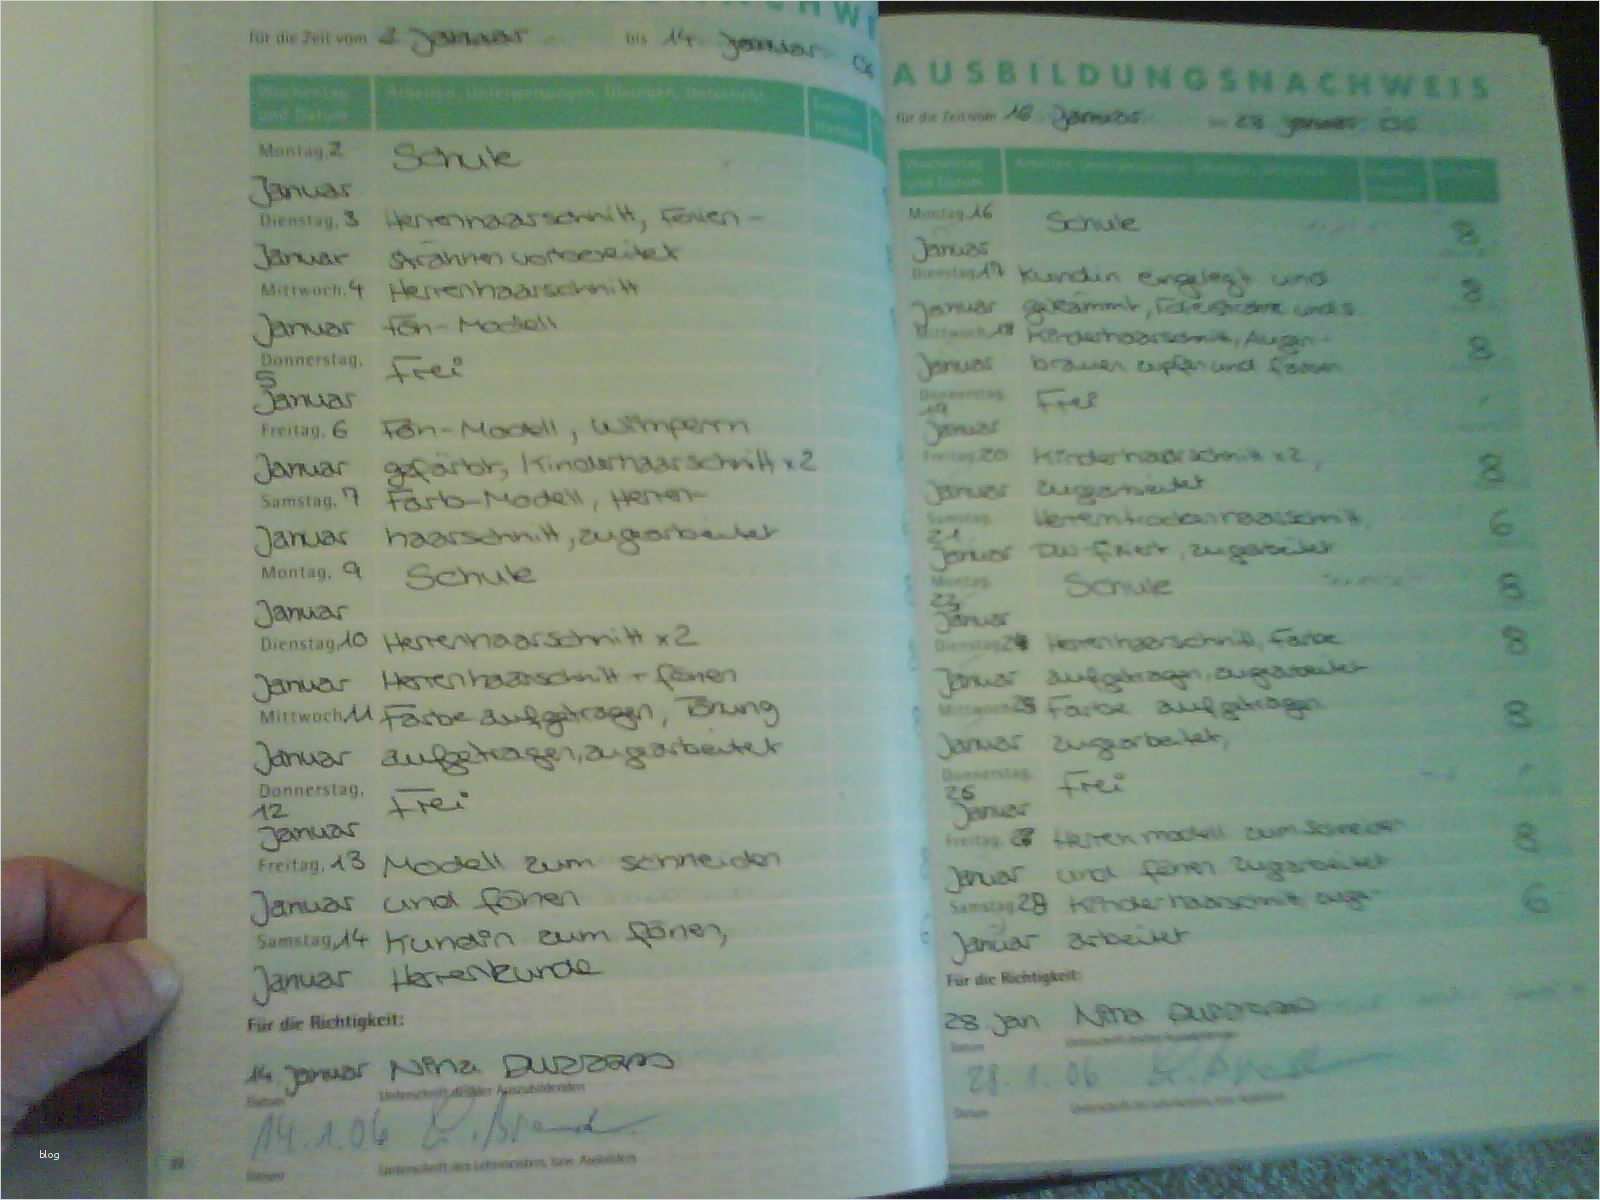 für die Zeit vom 2 Januar bis 14. Januar 06
Wochentag und Datum
Arbeiten, Unterweisungen, Übungen, Unterricht
Montag, 2 Januar
Schule
Dienstag, 3 Januar
Herrenhaarschnitt, Folien-
strähnen vorbereitet
Mittwoch, 4 Januar
Herrenhaarschnitt
fön-Modell
Donnerstag, 5 Januar
Frei
Freitag, 6 Januar
Fön-Modell, Wimpern
gefärbt, Kinderhaarschnitt x2
Samstag, 7 Januar
Farb-Modell, Herren-
haarschnitt, zugearbeitet
Montag, 9 Januar
Schule
Dienstag, 10 Januar
Herrenhaarschnitt x2
Herrenhaarschnitt + fönen
Mittwoch 11 Januar
Farbe aufgetragen, Tönung
aufgetragen, zugearbeitet
Donnerstag, 12 Januar
Frei
Freitag, 13 Januar
Modell zum schneiden
und fönen
Samstag, 14 Januar
Kundin zum fönen,
Herrenkunde
Für die Richtigkeit:
14 Januar Nina
Datum
Unterschrift des/der Auszubildenden
14.1.06
Datum
Unterschrift des Lehrmeisters, bzw. Ausbilders
AUSBILDUNGSNACHWEIS
für die Zeit vom 16 Januar bis 28 Januar 06
Wochentag und Datum
Montag, 16 Januar
Schule 8
Dienstag, 17 Januar
Kundin eingelegt und 8
gekämmt,
Mittwoch, 18 Januar
Kinderhaarschnitt, Augen- 8
brauen zupfen und färben
Donnerstag, 19 Januar
Frei
Freitag, 20 Januar
Kinderhaarschnitt x2, 8
zugearbeitet
Samstag, 21 Januar
Herrentrockenhaarschnitt, 6
DW-fixiert, zugearbeitet
Montag, 23 Januar
Schule 8
Dienstag, 24 Januar
Herrenhaarschnitt, Farbe 8
aufgetragen, zugearbeitet
Mittwoch, 25 Januar
Farbe aufgetragen 8
zugearbeitet,
Donnerstag, 26 Januar
Frei
Freitag, Januar
Herrenmodell zum schneiden 8
und fönen zugearbeitet
Samstag, 28 Januar
Kinderhaarschnitt, zuge- 6
arbeitet
Für die Richtigkeit:
28 Jan Nina
Datum
28.1.06
Datum
blog